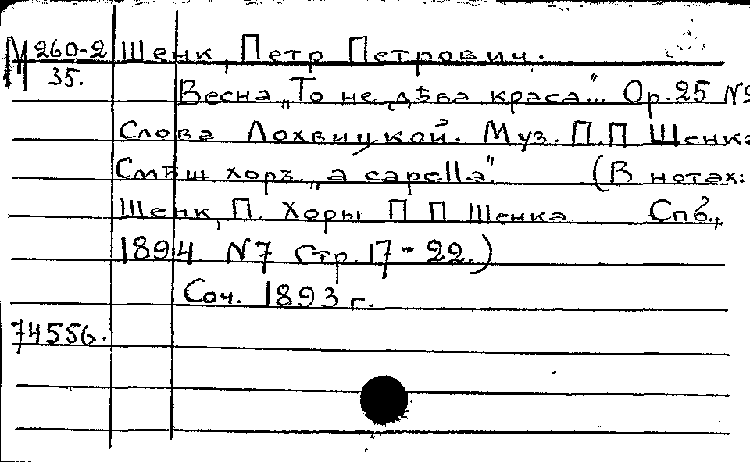 М 260-2 Шенк, Петр Петрович.
35.
Весна „То не дѣва краса“... Ор. 25 №
Слова Лохвицкой. Муз. П. П Шенка
Смѣш хоръ „a capella“ (В нотах:
Шенк, П. Хоры П П Шенка Спб.,
1894. N7 Стр. 17-22.)
Соч. 1893 г.
74556.